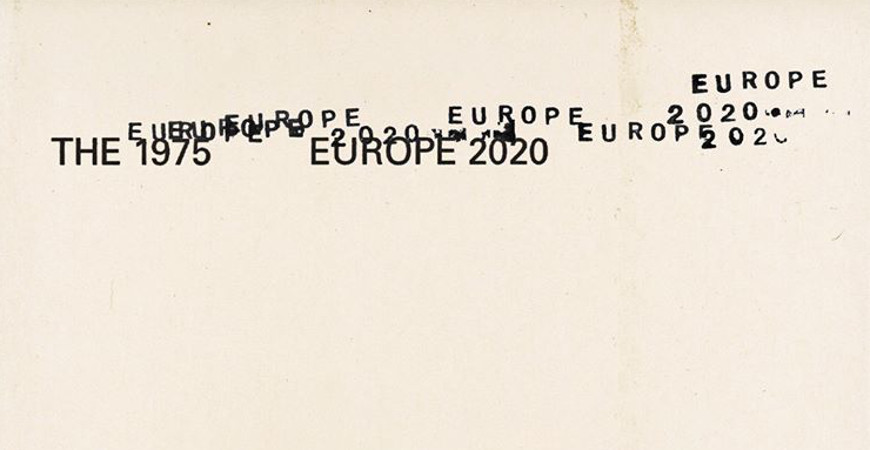 EUROPE
EUROPE
2020
EUROPE
EUROPE
2020
EUROPE
202
THE 1975 EUROPE 2020